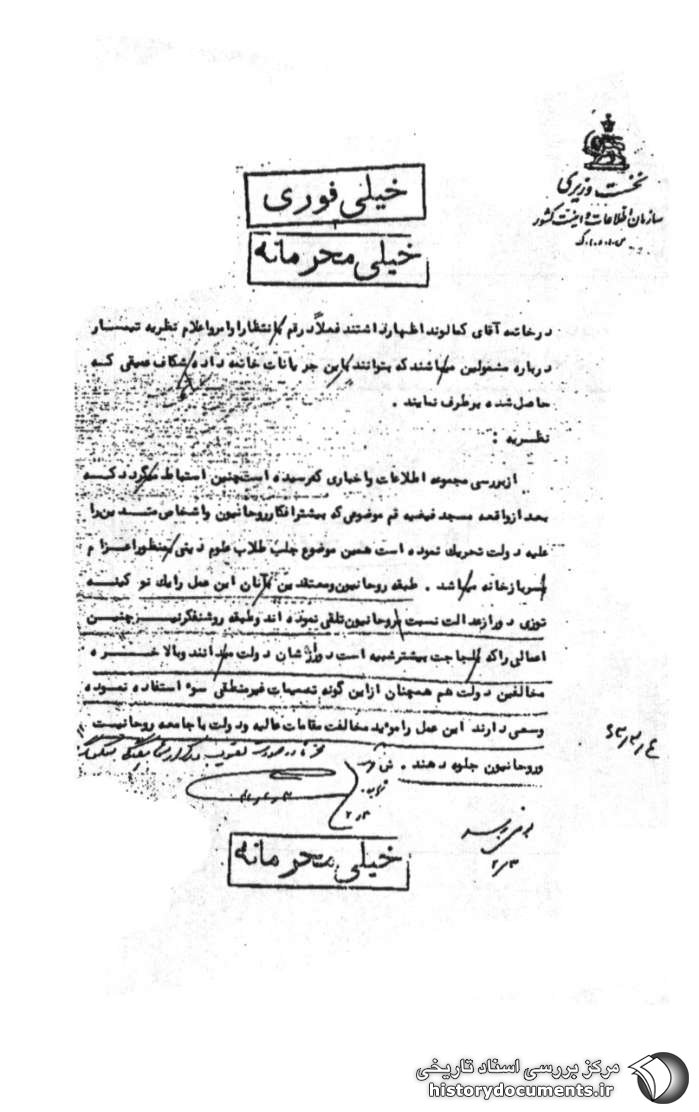 نخست وزیری
سازمان اطلاعات و امنیت کشور
خیلی فوری
خیلی محرمانه
درخاتمه آقای کمالوند اظهار داشتند فعلاً در قم به انتظار اوامر و اعلام نظریه تیمسار
درباره مشمولین میباشند که بتوانند به این جریانات خاتمه داده شکاف عمیقی که
حاصل شده برطرف نمایند .
نظریه :
از بررسی مجموعه اطلاعات و اخباری که رسیده است چنین استنباط میگردد که
بعد از واقعه مسجد فیضیه قم موضوعی که بیشتر افکار روحانیون و اشخاص متدین را
علیه دولت تحریک نموده است همین موضوع جلب طلاب علوم دینی بمنظور اعزام
بسربازخانه میباشد . طبقه روحانیون و معتقدین به آنان این عمل را یک نوع کینه
توزی دور از عدالت نسبت به روحانیون تلقی نموده اند و طبقه روشنفکر نیز چنین
اعمالی را که به لجاجت بیشتر شبیه است دور از شان دولت میدانند و بالاخره
مخالفین دولت هم همچنان از این گونه تصمیمات غیرمنطقی سوء استفاده نموده
وسعی دارند این عمل را موید مخالفت مقامات عالیه و دولت با جامعه روحانیت
و روحانیون جلوه دهند .
خیلی محرمانه
مرکز بررسی اسناد تاریخی
historydocuments.ir